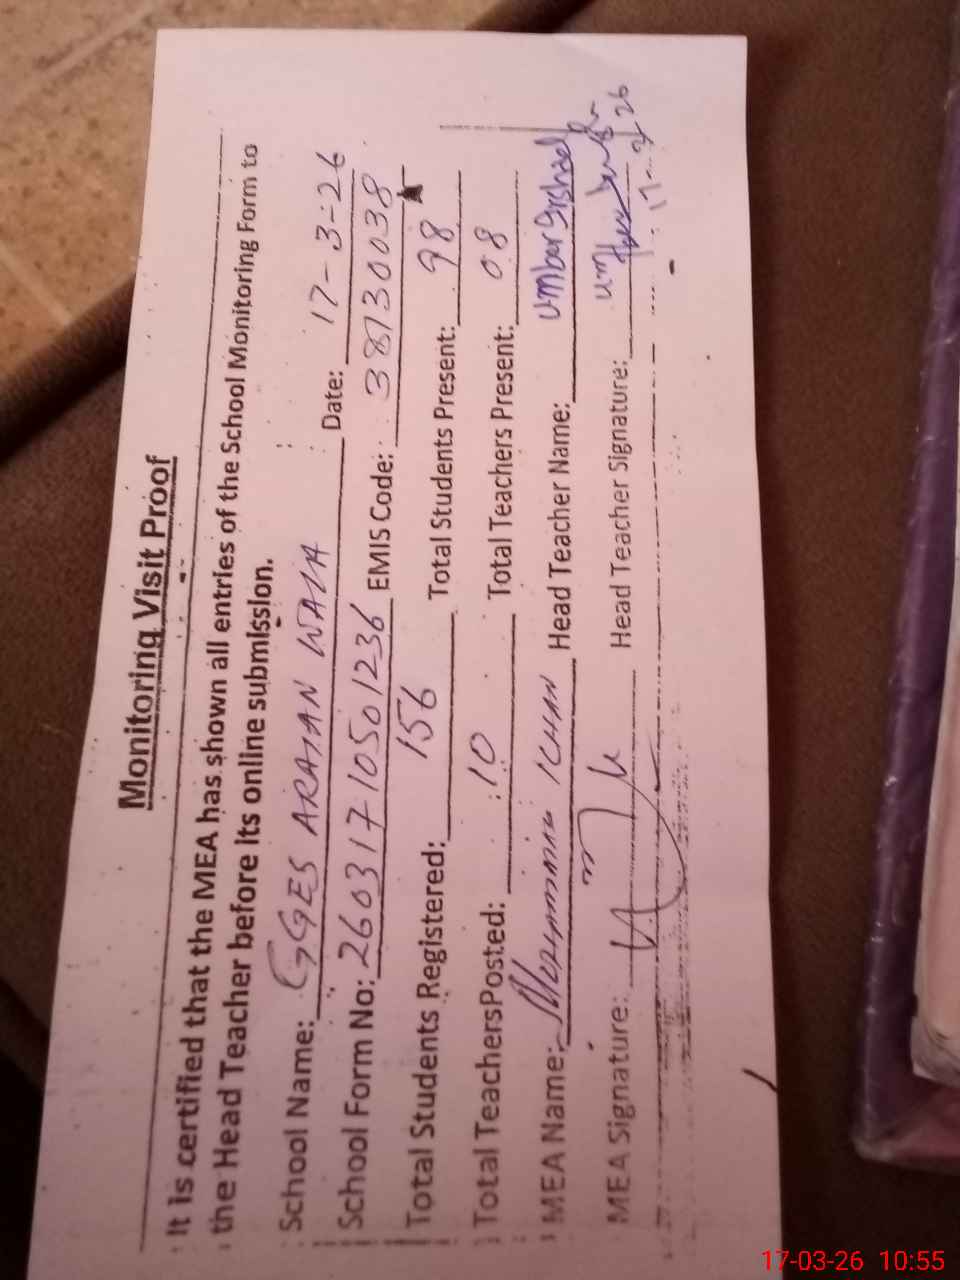 Monitoring Visit Proof
It is certified that the MEA has shown all entries of the School Monitoring Form to
the Head Teacher before its online submission.
School Name: GGES ARAIAN WALA Date: 17-3-26
School Form No: 2603171050 1236 EMIS Code: 38130038
Total Students Registered: 156 Total Students Present: 98
Total TeachersPosted: 10 Total Teachers Present: 08
MEA Name: KHAN Head Teacher Name: Umbar
MEA Signature: Head Teacher Signature:
17-03-26 10:55